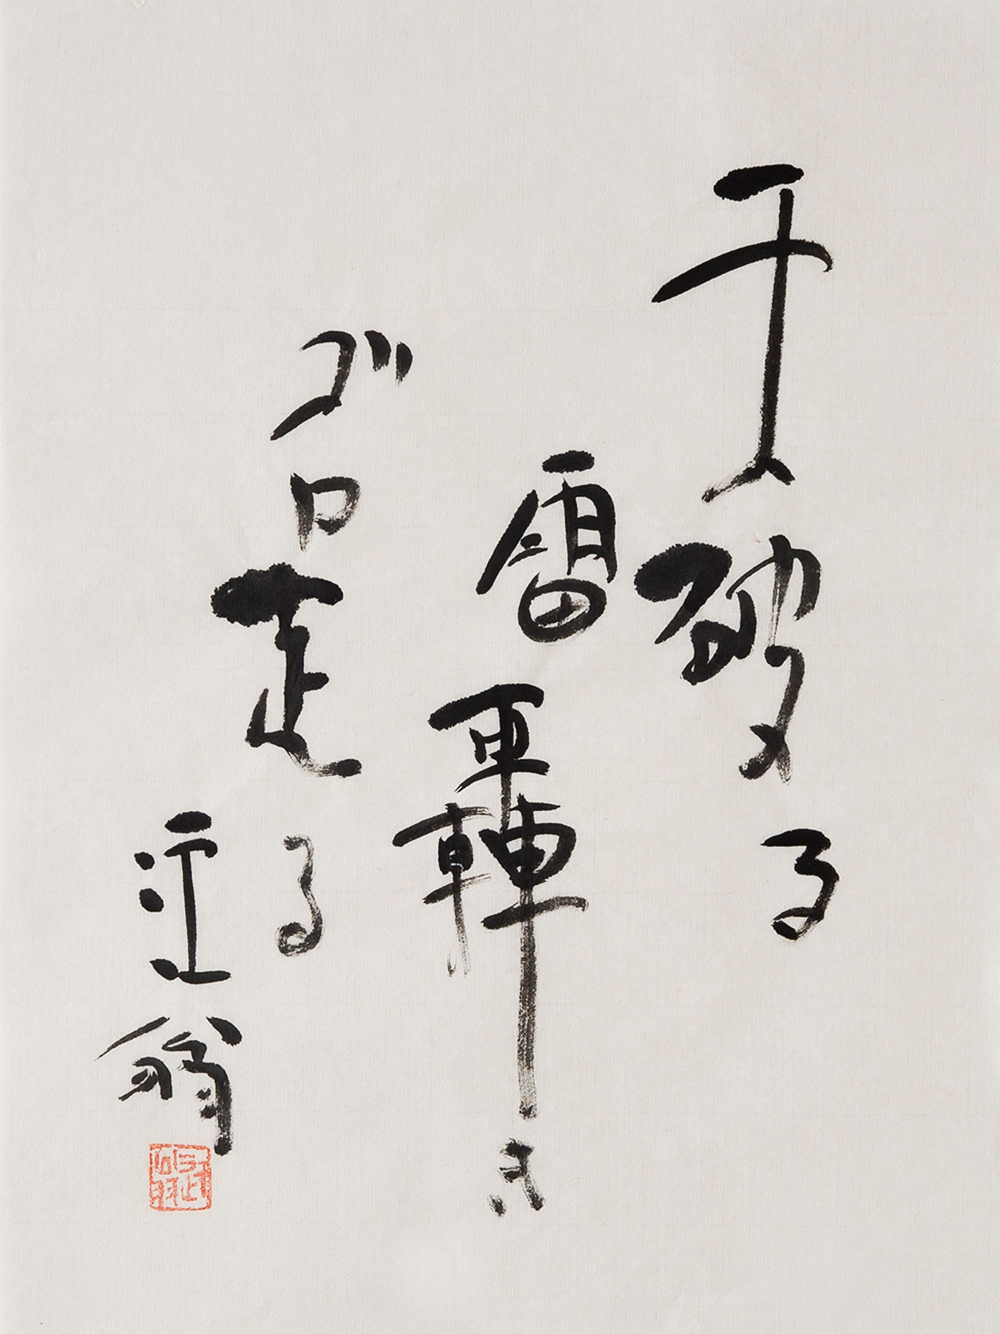 天破る
雷轟き
ゴロ走る
江翁